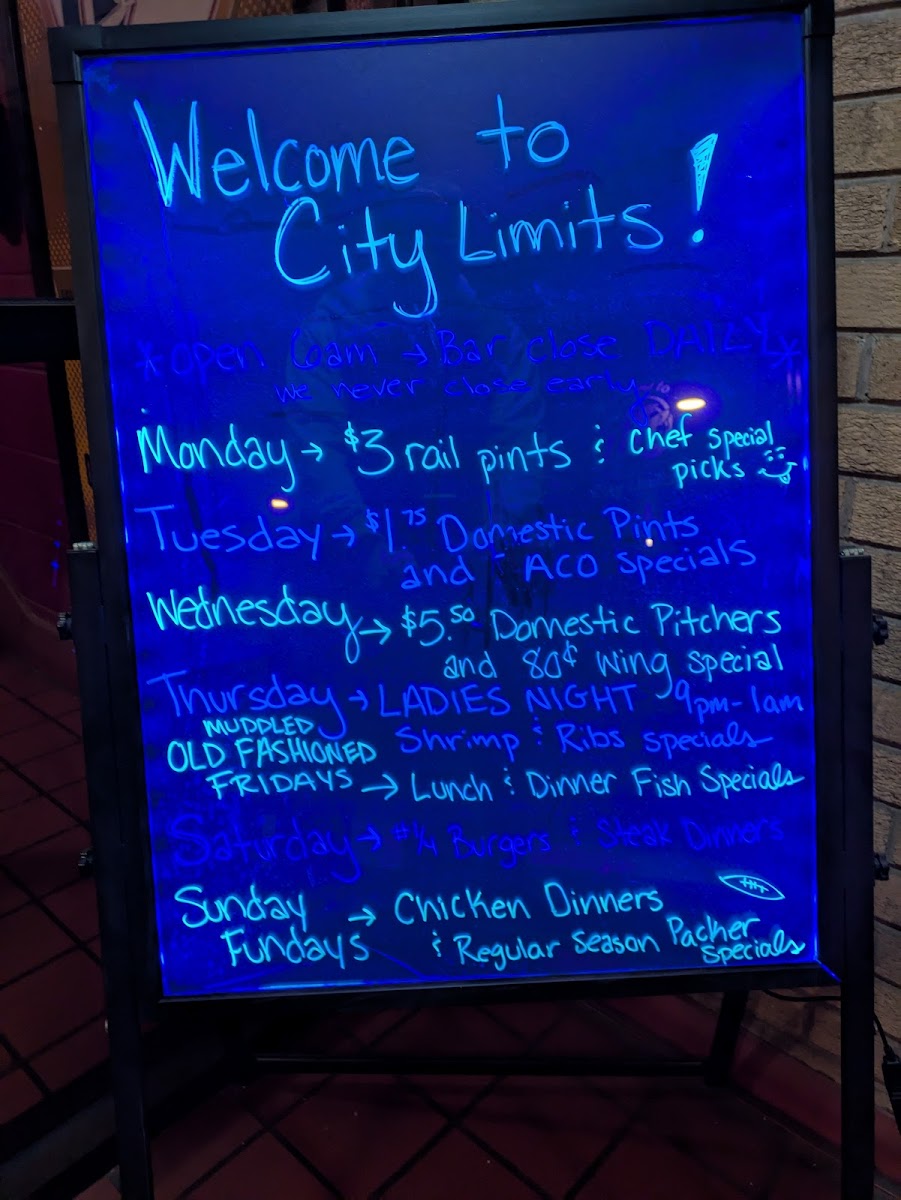 Welcome to
City Limits!
*Open 6am → Bar close DAILY*
we never close early
Monday → $3 rail pints & Chef special
picks
Tuesday → $1.75 Domestic Pints
and TACO Specials
Wednesday → $5.50 Domestic Pitchers
and 80¢ wing special
Thursday → LADIES NIGHT 9pm-1am
Shrimp & Ribs specials
MUDDLED
OLD FASHIONED
FRIDAYS → Lunch & Dinner Fish Specials
Saturday → #1/4 Burgers & Steak Dinners
Sunday
Fundays → Chicken Dinners
& Regular Season Packer
Specials